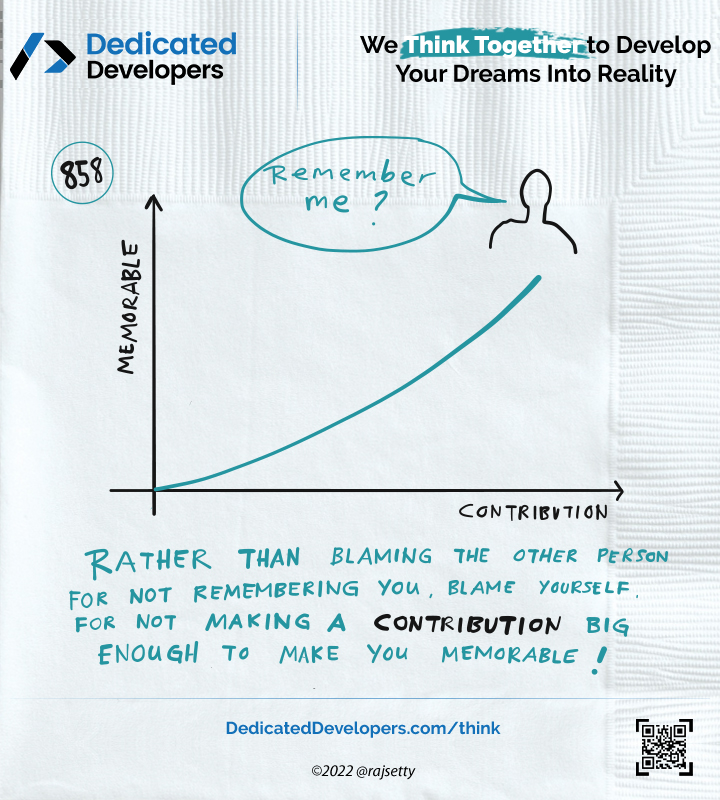 Dedicated
Developers
We Think Together to Develop
Your Dreams Into Reality
858
Remember
me ?
MEMORABLE
CONTRIBUTION
RATHER THAN BLAMING THE OTHER PERSON
FOR NOT REMEMBERING YOU, BLAME YOURSELF.
FOR NOT MAKING A CONTRIBUTION BIG
ENOUGH TO MAKE YOU MEMORABLE !
DedicatedDevelopers.com/think
©2022 @rajsetty